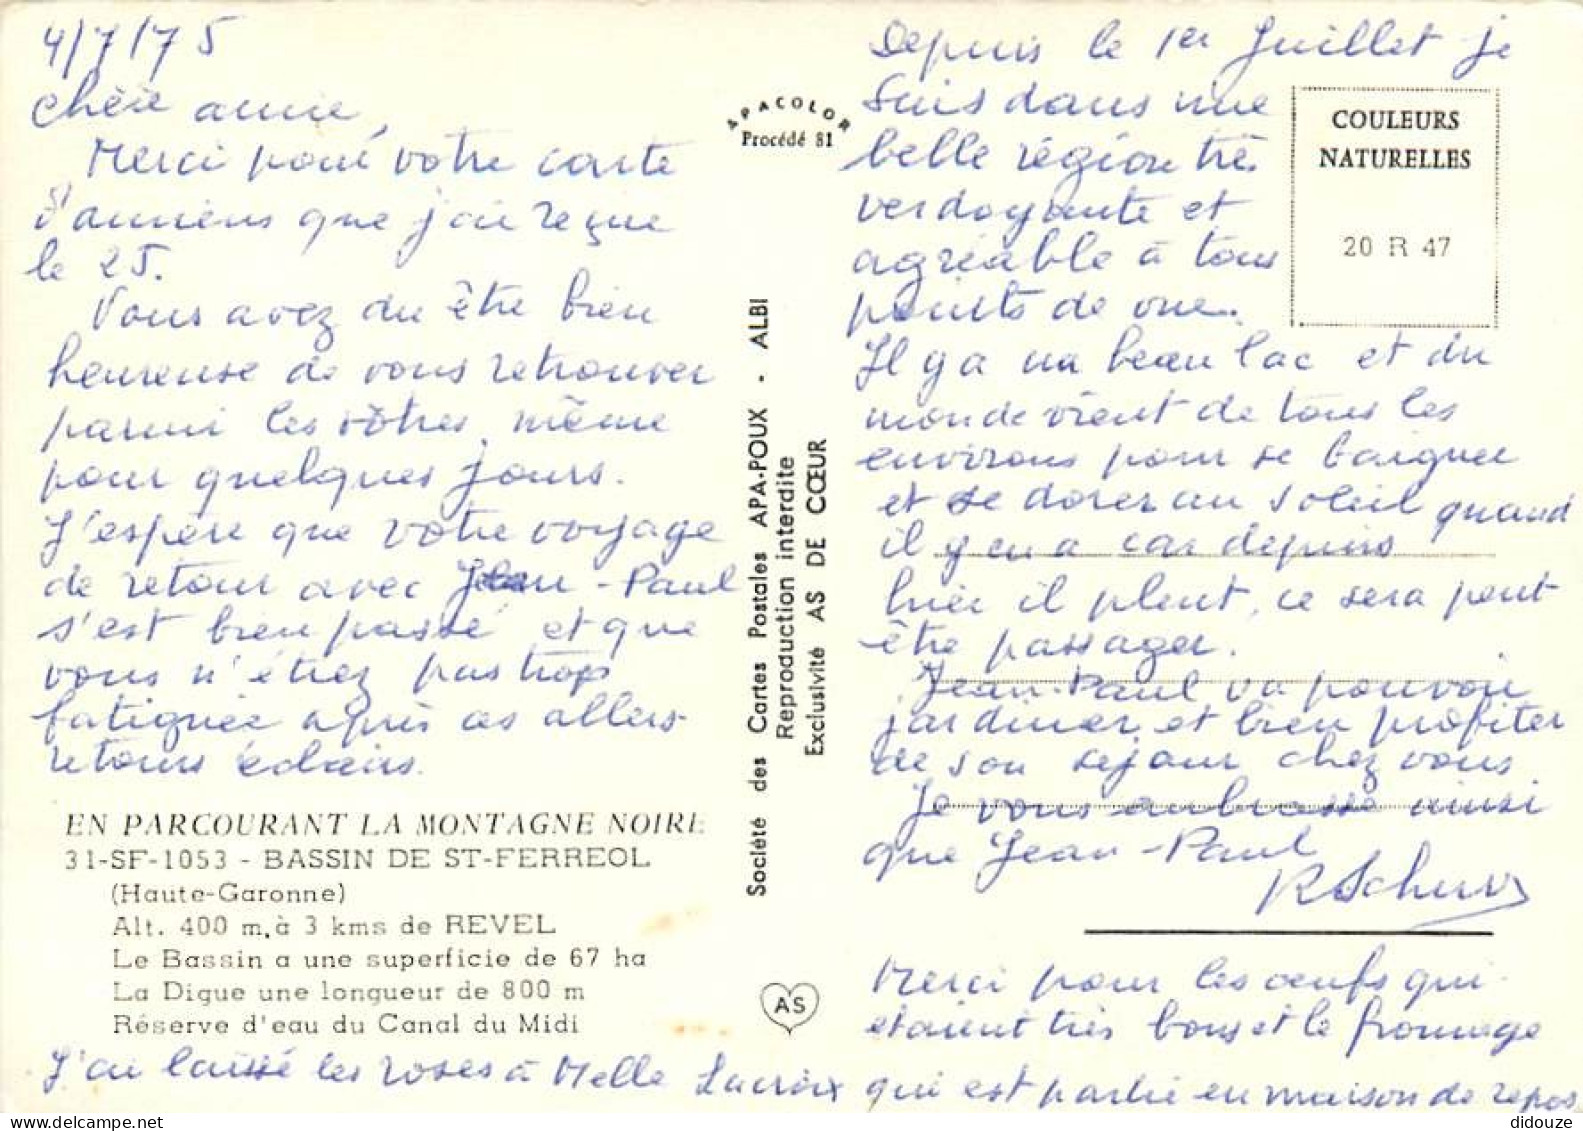 4/7/75
Chère amie,
Merci pour votre carte
d'amiens que j'ai reçue
le 25.
Vous avez du être bien
heureuse de vous retrouver
parmi les vôtres, même
pour quelques jours.
J'espère que votre voyage
de retour avec Jean-Paul
s'est bien passé et que
vous n'étiez pas trop
fatiguée après ces allers-
retours éclairs.
EN PARCOURANT LA MONTAGNE NOIRE
31-SF-1053 - BASSIN DE ST-FERREOL
(Haute-Garonne)
Alt. 400 m. à 3 kms de REVEL
Le Bassin a une superficie de 67 ha
La Digue une longueur de 800 m
Réserve d'eau du Canal du Midi
J'ai laissé les roses à Melle Lacroix
qui est partie en maison de repos
APACOLOR
Procédé 81
Société des Cartes Postales APA-POUX - ALBI
Reproduction interdite
Exclusivité AS DE CŒUR
AS
Depuis le 1er Juillet je
suis dans une
belle région très
verdoyante et
agréable à tous
points de vue.
Il y a un beau lac et du
monde vient de tous les
environs pour se baigner
et se dorer au soleil quand
il y en a car depuis
hier il pleut, ce sera peut
être passager.
Jean-Paul va pouvoir
jardiner et bien profiter
de son séjour chez vous.
Je vous embrasse ainsi
que Jean-Paul
Merci pour les oeufs qui
étaient très bons et le fromage
COULEURS
NATURELLES
20 R 47
didouze